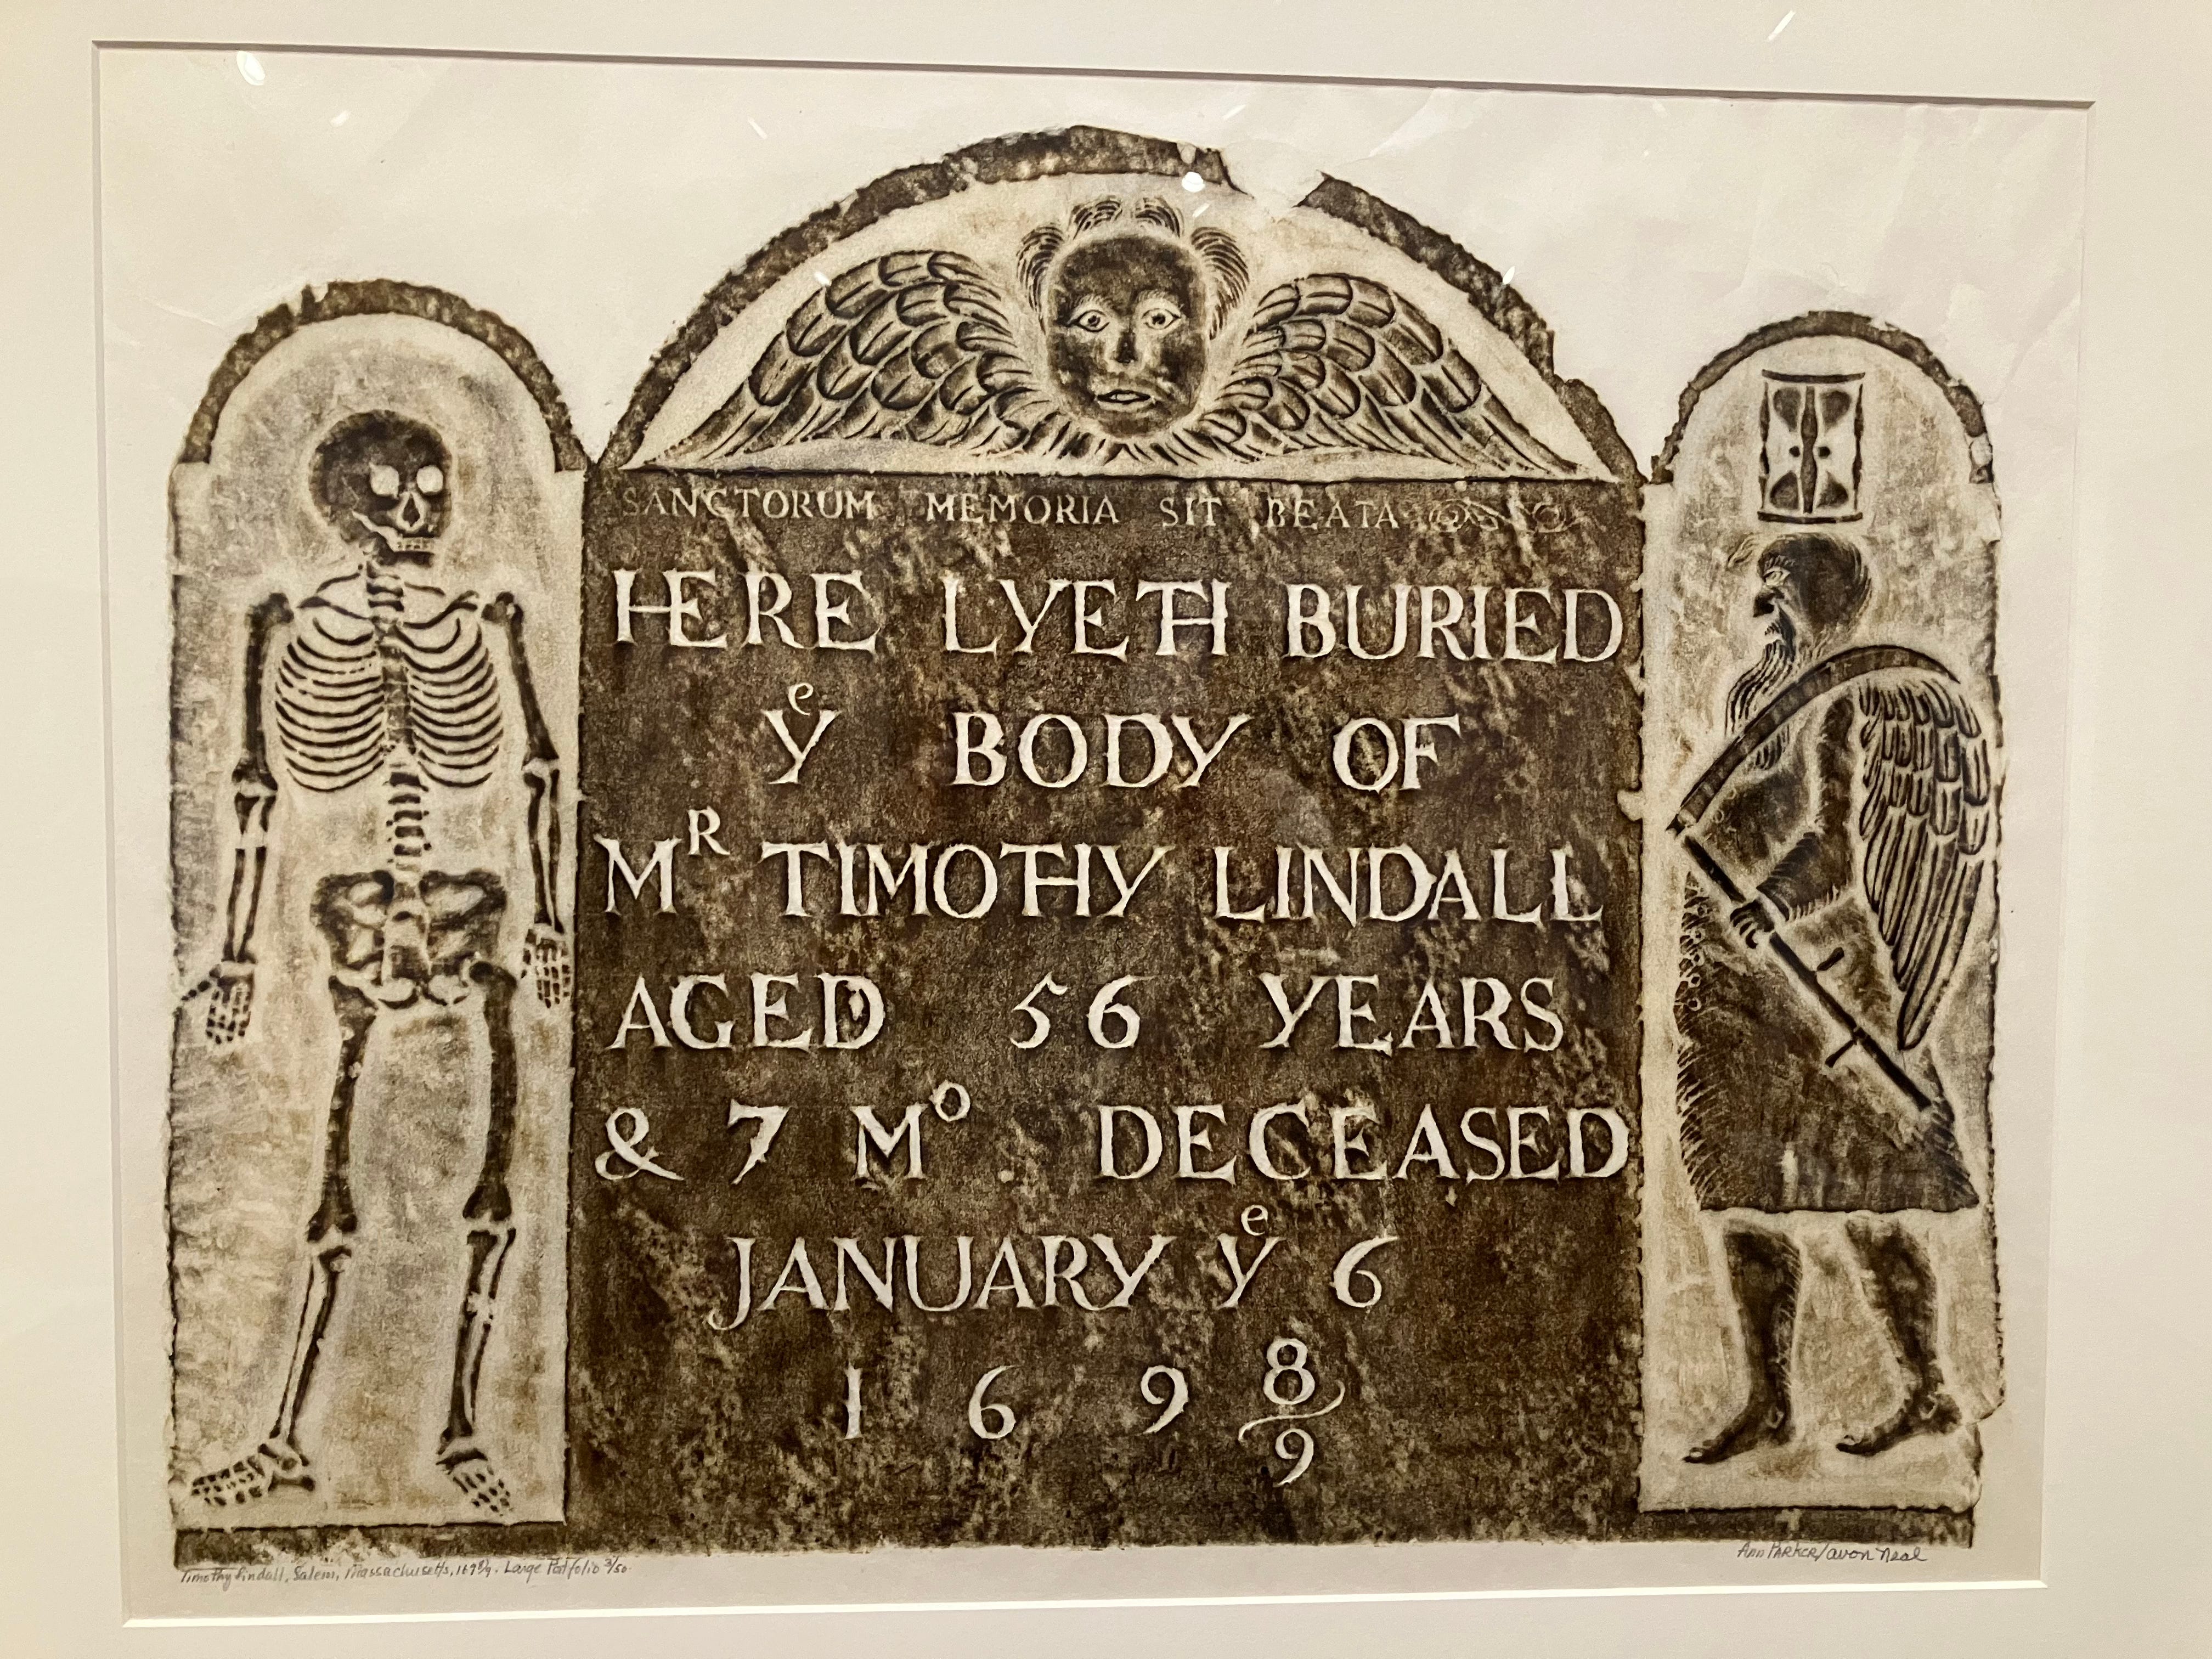 SANCTORUM MEMORIA SIT BEATA
HERE LYETH BURIED
Yᵉ BODY OF
Mᴿ TIMOTHY LINDALL
AGED 56 YEARS
& 7 Mº DECEASED
JANUARY Yᵉ 6
169 8/9
Timothy Lindall, Salem, Massachusetts, 169 8/9. Large Portfolio 3/50
Ann Parker/Avon Neal